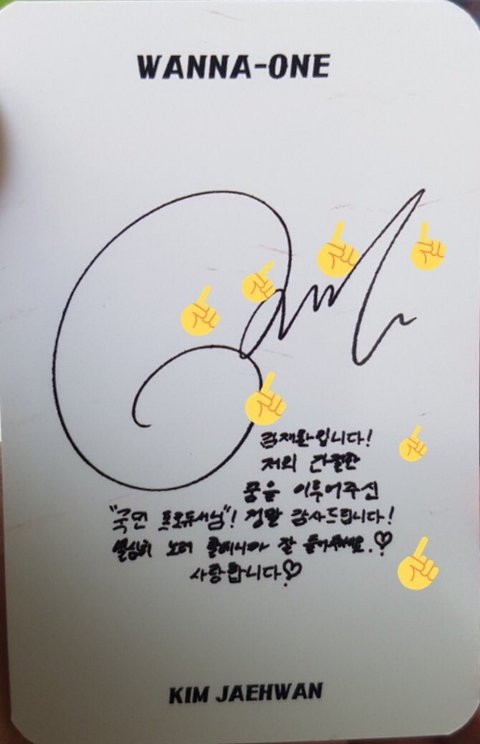 WANNA-ONE
김재환입니다!
저의 간절한
꿈을 이루어주신
"국민 프로듀서님"! 정말 감사드립니다!
열심히 노래 할테니까 잘 들어주세요.♡
사랑합니다♡
KIM JAEHWAN